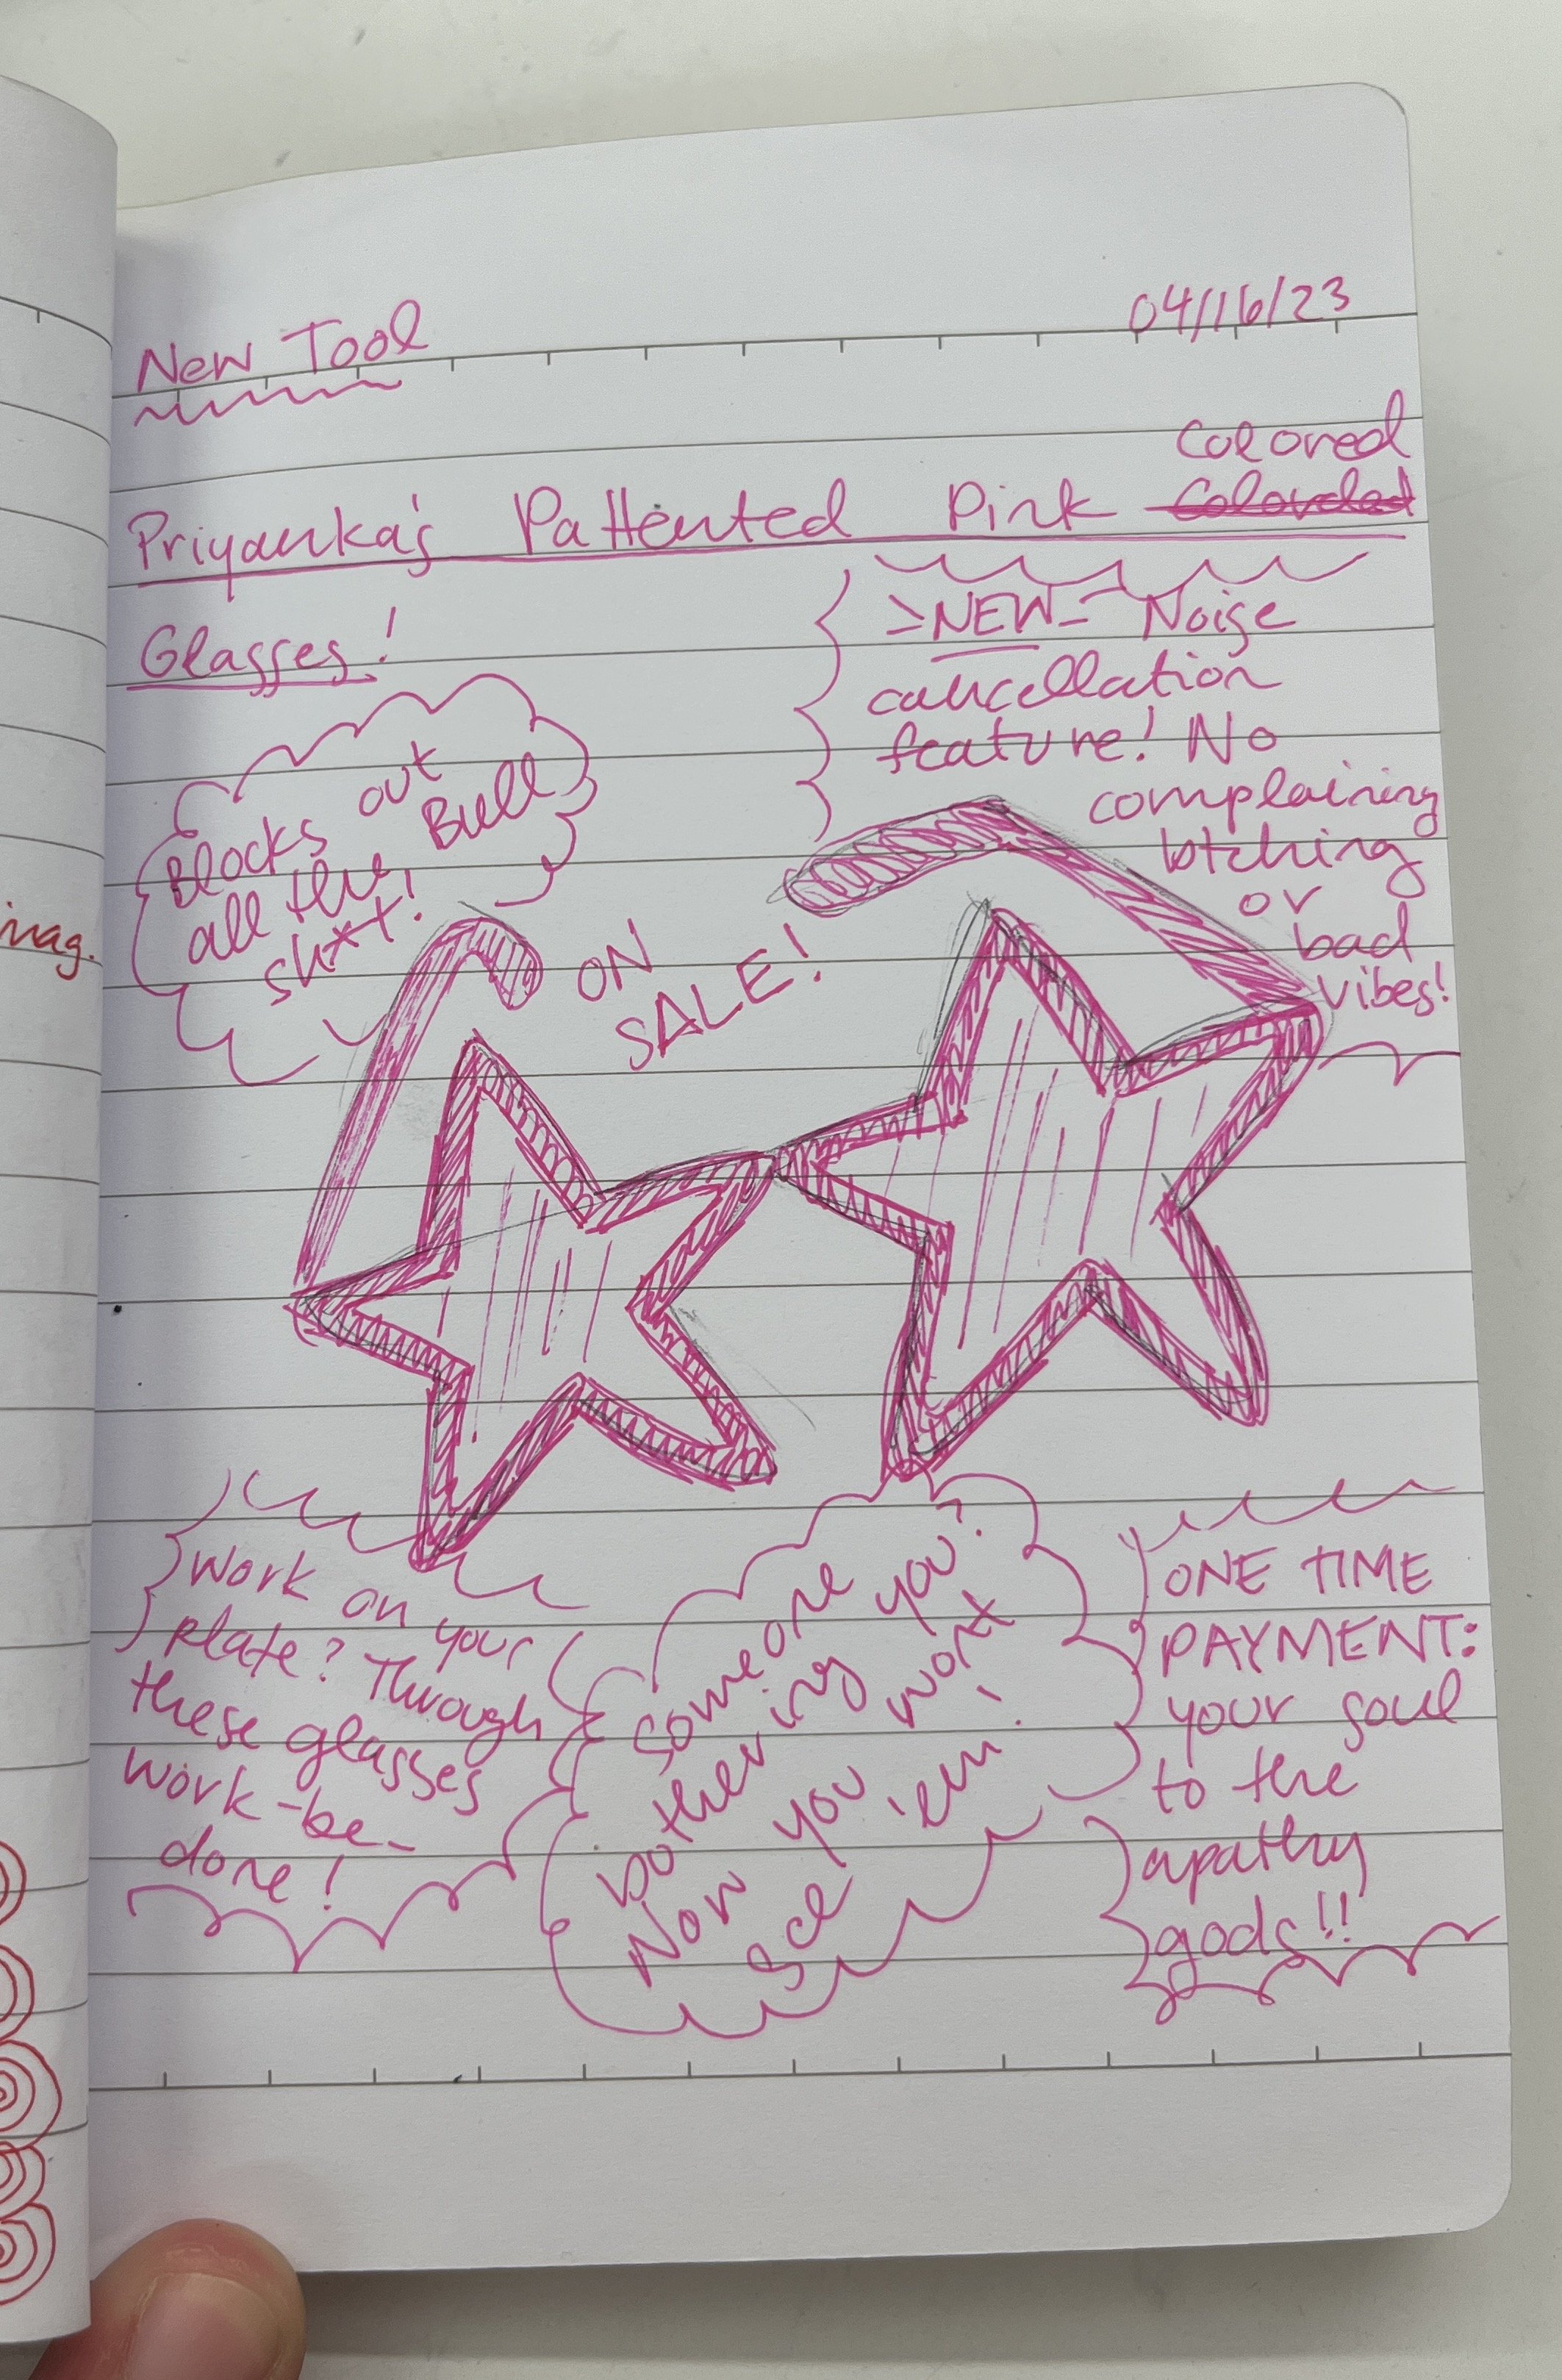 New Tool
04/16/23
Colored
Priyanka's Pattented Pink
Glasses!
Blocks out
all the Bull
sh*t!
>NEW< Noise
cancellation
feature! No
complaining
btching
or
bad
vibes!
ON
SALE!
Work on your
plate? Through
these glasses
work-be-
done!
Someone
bothering you?
Now you wont
see 'em!
ONE TIME
PAYMENT:
your soul
to the
apathy
gods!!
mag.